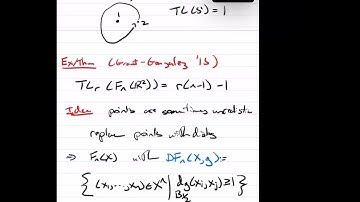 TC(S¹) = 1
Ex/thm (Grant-Gonzalez '15)
TCr (Fn(R²)) = r(n-1) -1
Idea: points are sometimes unrealistic
replace points with disks
⇒ Fn(X) with DFn(X,g) :=
{ (x₁,...,xn) ∈ Xⁿ | dg(xi,xj) ≥ 1 }